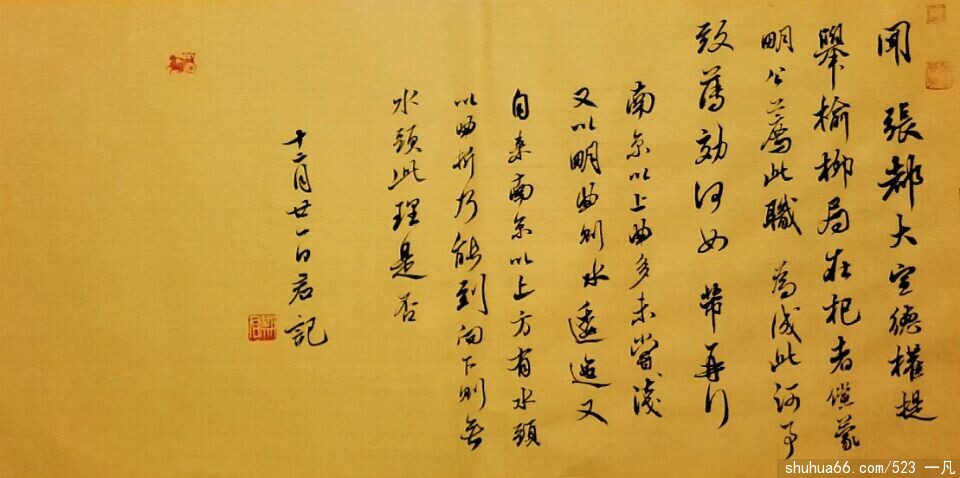 聞 張都大宣德權提
舉榆柳局在杞者儻蒙
明公薦此職 為成此河事
致薄効何如 芾再行
南京以上曲多未嘗淺
又以明曲則水逶迤又
自来南京以上方有水頭
以曲折乃能到向下則無
水頭此理是否
十二月廿一日君記
shuhua66.com/523 一凡